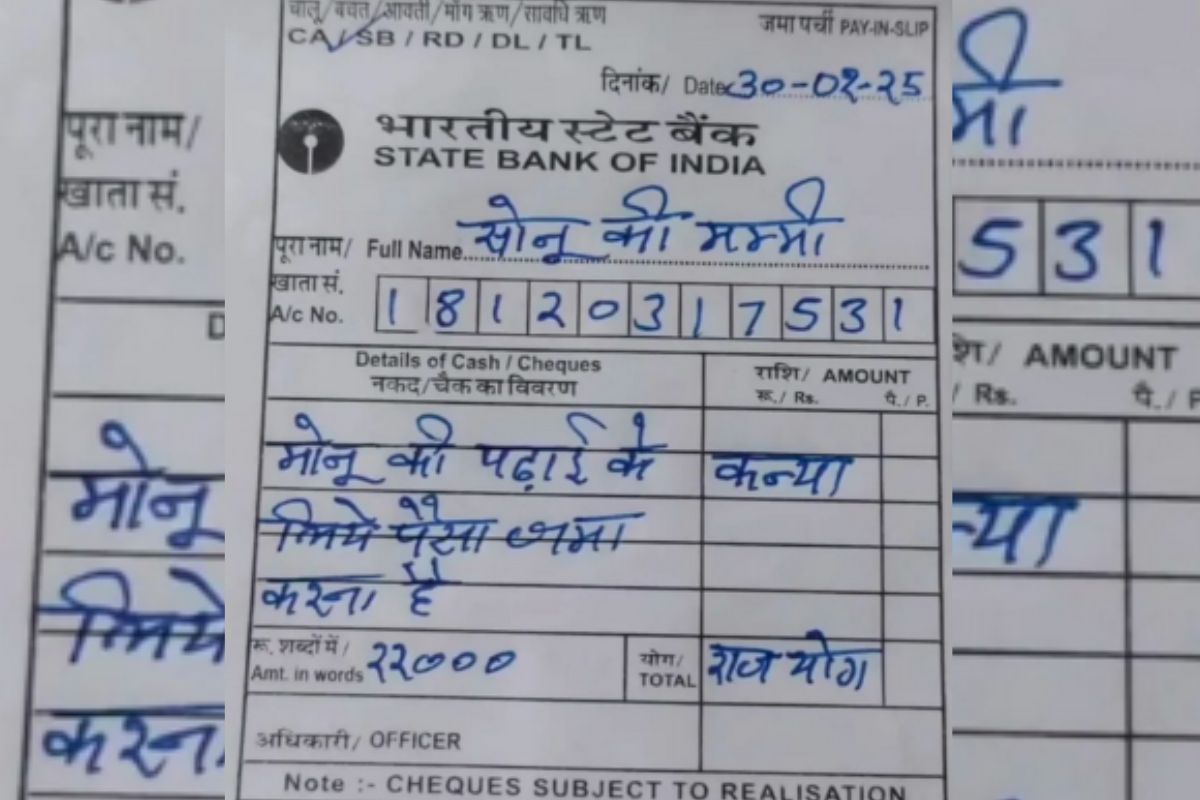 चालू/बचत/आवर्ती/माँग ऋण/सावधि ऋण
जमा पर्ची PAY-IN-SLIP
CA/SB / RD / DL / TL
दिनांक/ Date 30-02-25
भारतीय स्टेट बैंक
STATE BANK OF INDIA
पूरा नाम/ Full Name सोनू की मम्मी
खाता सं.
A/c No. 1 8 1 2 0 3 1 7 5 3 1
Details of Cash / Cheques
नकद/चैक का विवरण
राशि/ AMOUNT
रू./ Rs. पै./ P.
मोनू की पढ़ाई के कन्या
लिये पैसा जमा
करना है
रू. शब्दों में/
Amt. in words २२०००
योग/
TOTAL राज योग
अधिकारी/ OFFICER
Note :- CHEQUES SUBJECT TO REALISATION
पूरा नाम/
खाता सं.
A/c No.
मोनू
लिये
करना
मी
5 3 1
शि/ AMOUNT
/ Rs. पै./ P
न्या